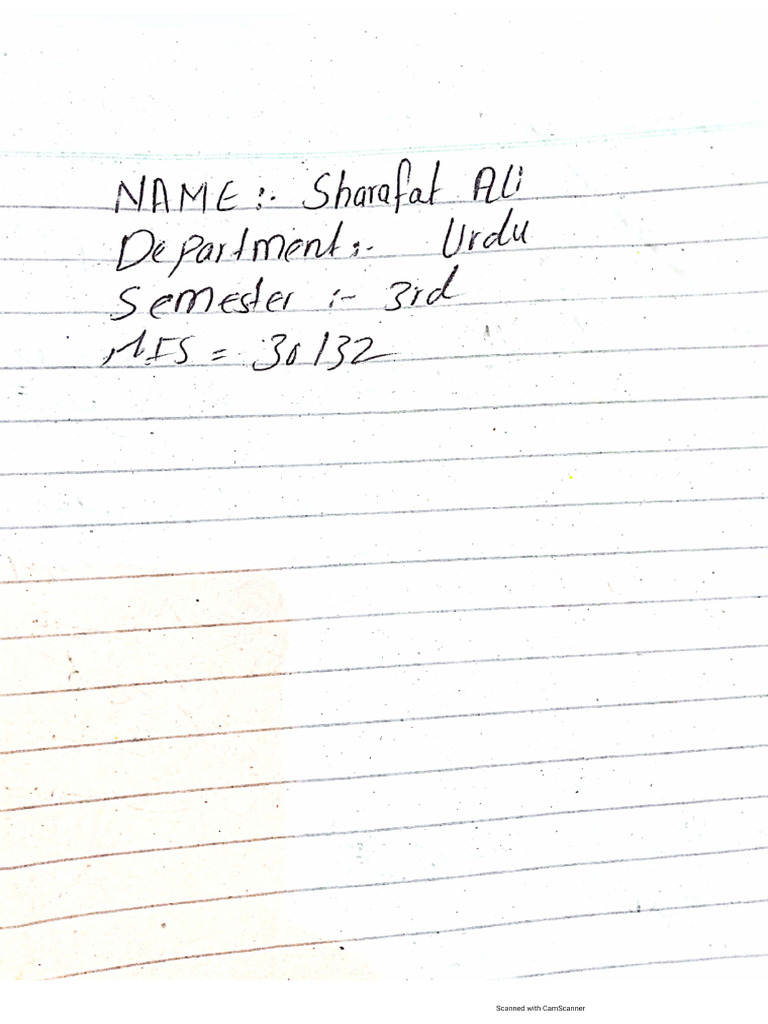 NAME :- Sharafat Ali
Department :- Urdu
Semester :- 3rd
MIS = 30132
Scanned with CamScanner